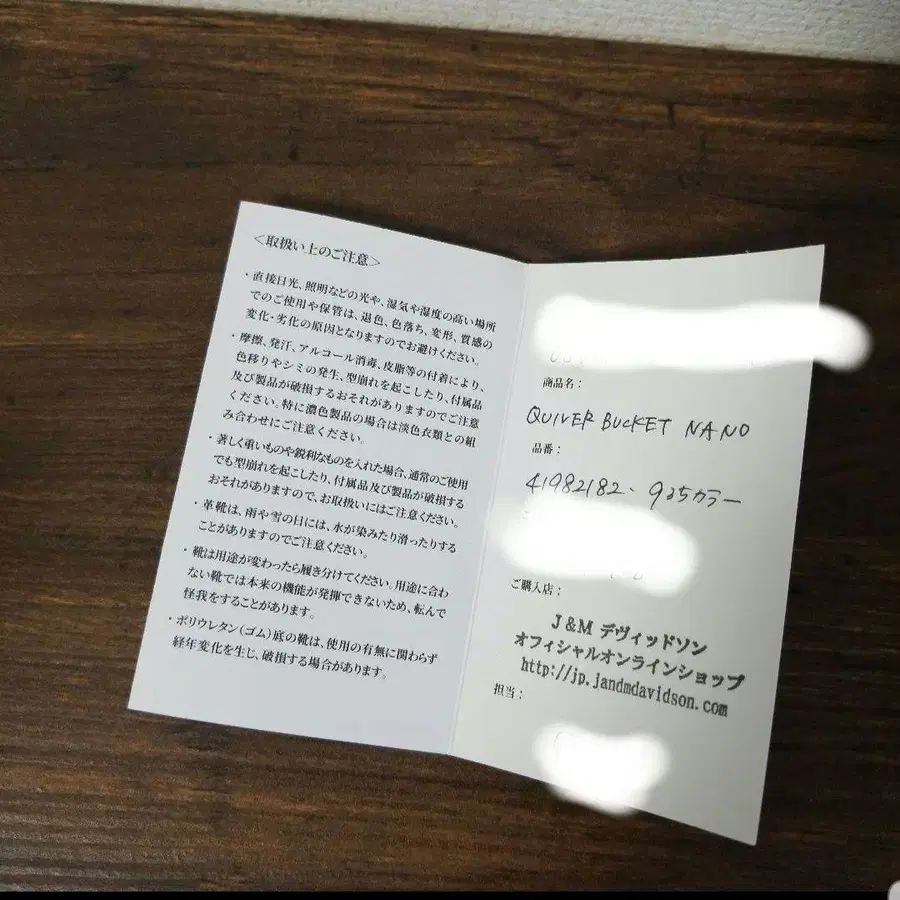 ＜取扱い上のご注意＞
・直接日光、照明などの光や、湿気や湿度の高い場所
でのご使用や保管は、退色、色落ち、変形、質感の
変化・劣化の原因となりますのでお避けください。
・摩擦、発汗、アルコール消毒、皮脂等の付着により、
色移りやシミの発生、型崩れを起こしたり、付属品
及び製品が破損するおそれがありますのでご注意
ください。特に濃色製品の場合は淡色衣類との組
み合わせにご注意ください。
・著しく重いものや鋭利なものを入れた場合、通常のご使用
でも型崩れを起こしたり、付属品及び製品が破損する
おそれがありますので、お取扱いにはご注意ください。
・革靴は、雨や雪の日には、水が染みたり滑ったりする
ことがありますのでご注意ください。
・靴は用途が変わったら履き分けてください。用途に合わ
ない靴では本来の機能が発揮できないため、転んで
怪我をすることがあります。
・ポリウレタン（ゴム）底の靴は、使用の有無に関わらず
経年変化を生じ、破損する場合があります。
商品名：
QUIVER BUCKET NANO
品番：
41982182、925カラー
ご購入店：
J&M デヴィッドソン
オフィシャルオンラインショップ
http://jp.jandmdavidson.com
担当：